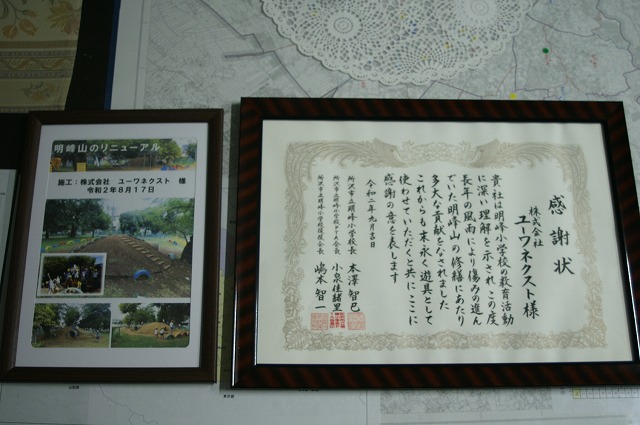 明峰山のリニューアル
施工：株式会社　ユーワネクスト　様
令和２年８月１７日
感謝状
株式会社
ユーワネクスト様
貴社は明峰小学校の教育活動
に深い理解を示されこの度
長年の風雨により傷みの進ん
でいた明峰山の修繕にあたり
多大な貢献をなされました
これからも末永く遊具として
使わせていただくと共にここに
感謝の意を表します
令和二年九月吉日
所沢市立明峰小学校長　本澤智巳
所沢市立明峰小学校PTA会長　小泉佳緒里
所沢市立明峰小学校後援会長　嶋本智一